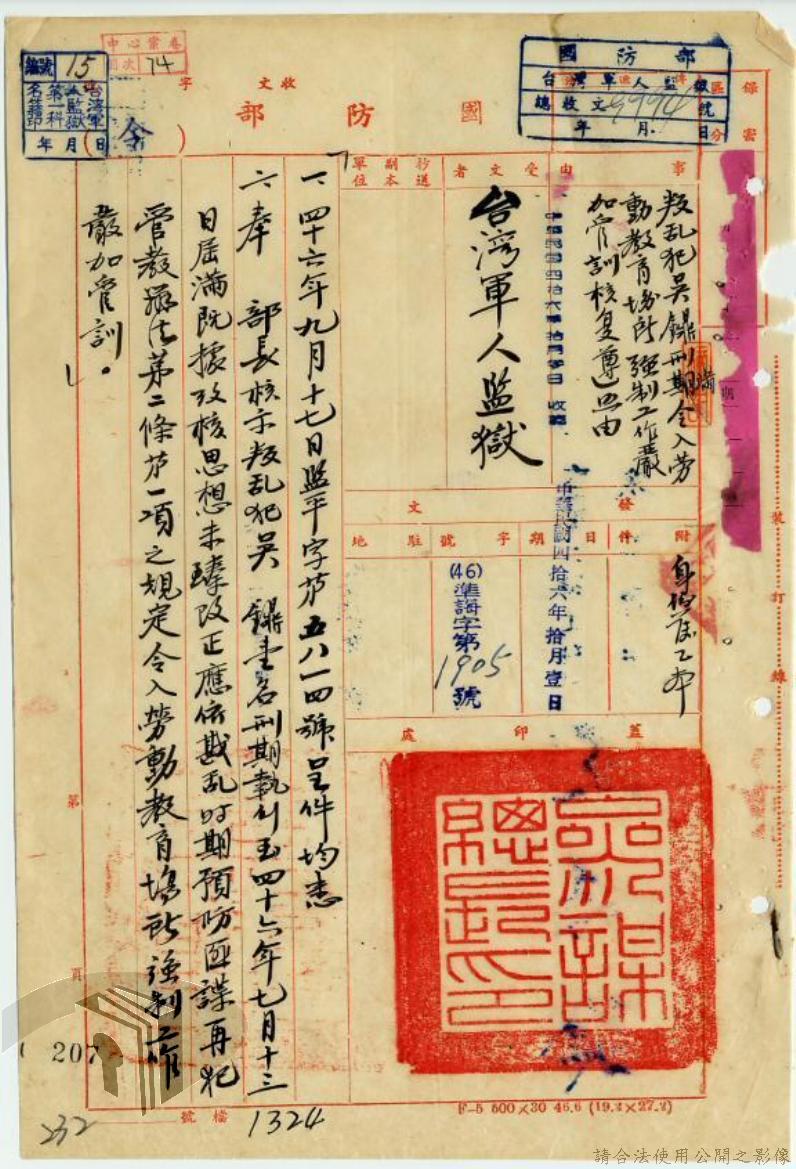 中心案卷
目次 74
編號 15
台灣軍人監獄
第 科
名籍印
年 月 日
收文 字
國防部
(令)
國防部
台灣軍人監獄
總收文 9994 號
年 月 日
保密
區分
事由
叛乱犯吳鎳刑期滿令入勞
動教育場所强制工作嚴
加管訓核复遵照由
受文者
中華民國四拾六年拾月 日 收
台湾軍人监獄
抄送
副本
單位
附件
身份簿乙本
發文
日期
中華民國四拾六年拾月壹日
字號
(46)
準海字第
1905
號
駐地
蓋印處
參謀
總長印
一、四十六年九月十七日监平字第五八一四號呈件均悉
六奉 部長核示叛乱犯吳 鎳壹名刑期執行至四十六年七月十三
日屆滿既據攷核思想未臻改正應依戡乱时期預防匪諜再犯
管教辦法第二條第一項之規定令入勞動教育場所强制工作
嚴加管訓。
裝訂線
第 頁
207
232
檔號
1324
F-5 500×30 46.6 (19.2×27.2)
請合法使用公開之影像